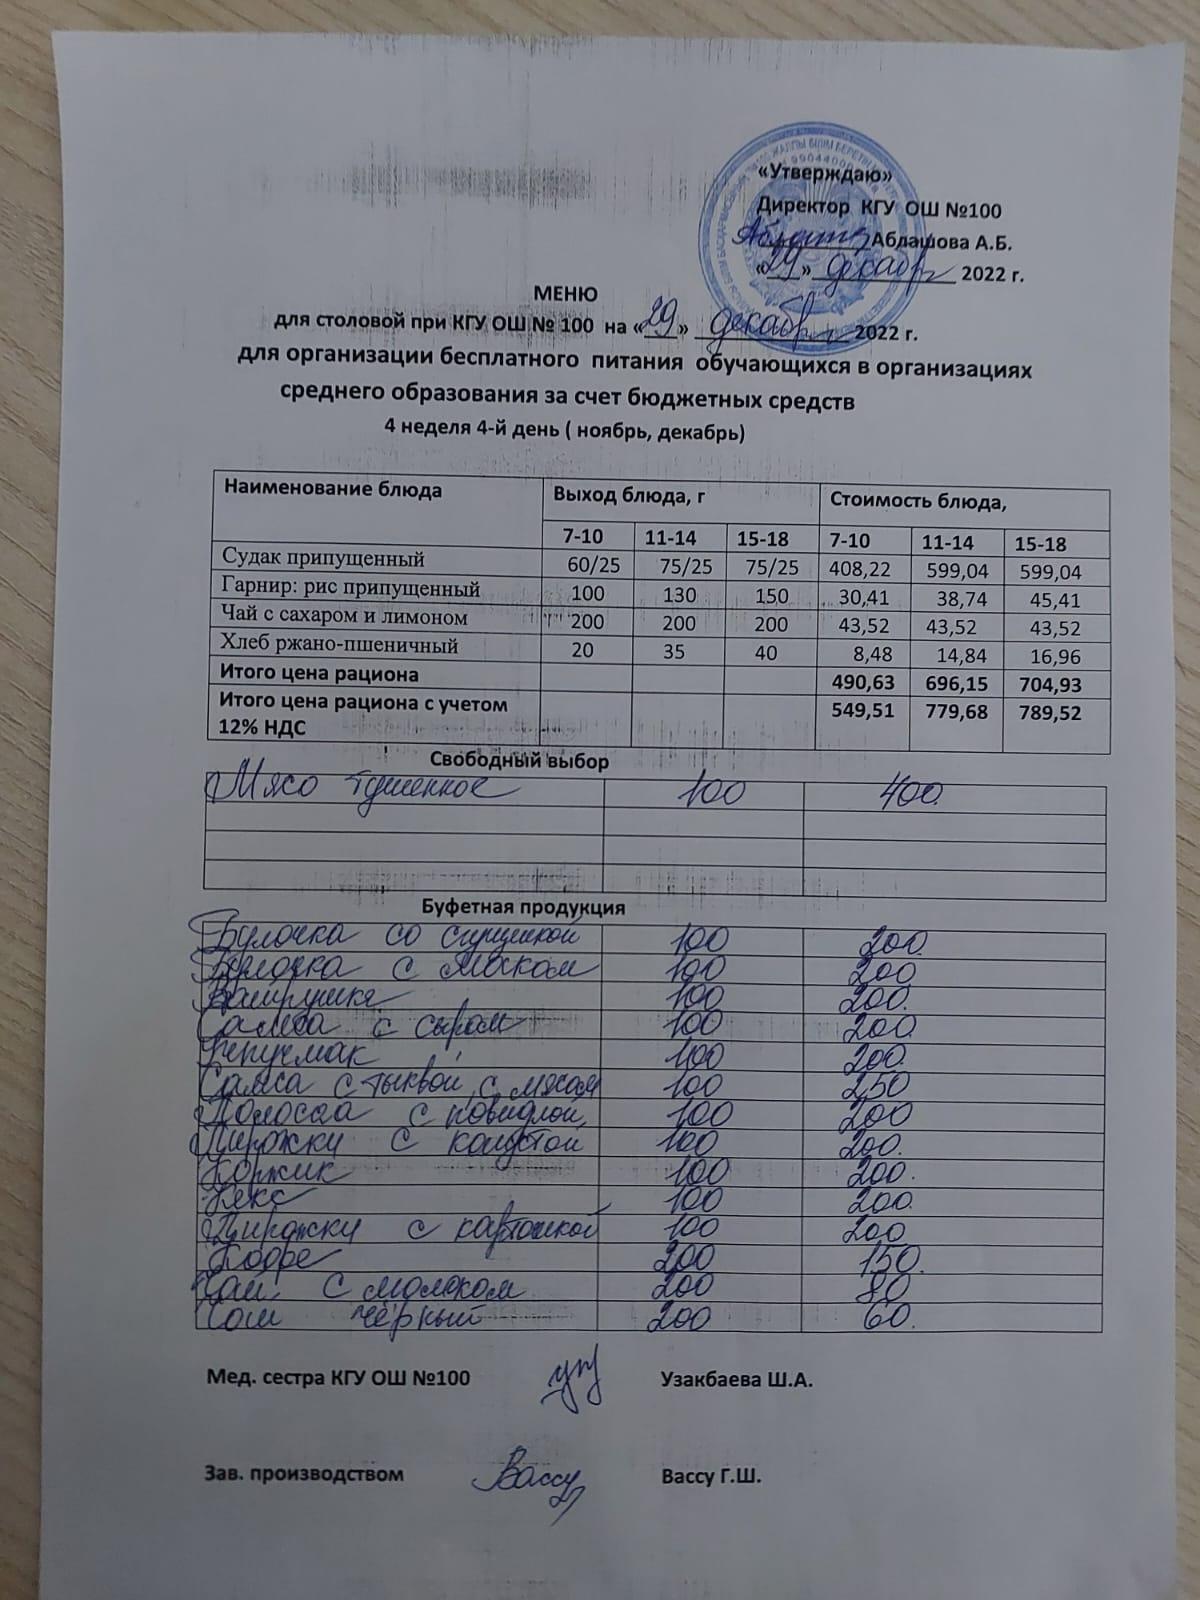 «Утверждаю»
Директор КГУ ОШ №100
Абдашова А.Б.
«29» декабр 2022 г.
МЕНЮ
для столовой при КГУ ОШ № 100 на «29» декабр 2022 г.
для организации бесплатного питания обучающихся в организациях
среднего образования за счет бюджетных средств
4 неделя 4-й день ( ноябрь, декабрь)
Наименование блюда Выход блюда, г Стоимость блюда,
7-10 11-14 15-18 7-10 11-14 15-18
Судак припущенный 60/25 75/25 75/25 408,22 599,04 599,04
Гарнир: рис припущенный 100 130 150 30,41 38,74 45,41
Чай с сахаром и лимоном 200 200 200 43,52 43,52 43,52
Хлеб ржано-пшеничный 20 35 40 8,48 14,84 16,96
Итого цена рациона 490,63 696,15 704,93
Итого цена рациона с учетом 549,51 779,68 789,52
12% НДС
Свободный выбор
Мясо тушенное 100 400
Буфетная продукция
Булочка со сгущенкой 100 200
Булочка с маком 100 200
Ватрушка 100 200
Самса с сыром 100 200
100 200
Самса с тыквой, с мясом 100 250
Полоска с повидлой 100 200
Пирожки с капустой 100 200
Коржик 100 200
Кекс 100 200
Пирожки с картошкой 100 200
Кофе 200 150
Чай с молоком 200 80
Чай чёрный 200 60
Мед. сестра КГУ ОШ №100 Узакбаева Ш.А.
Зав. производством Вассу Вассу Г.Ш.